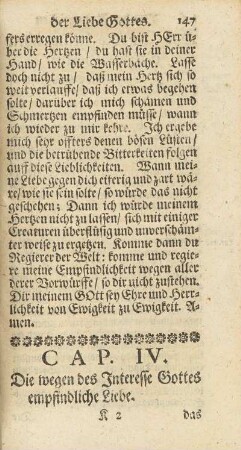 der Liebe Gottes. 147
fers erregen könne. Du bist HErr ü-
ber die Hertzen / du hast sie in deiner
Hand / wie die Wasserbache. Lasse
doch nicht zu / daß mein Hertz sich so
weit verlauffe / daß ich etwas begehen
solte / darüber ich mich schämen und
Schmertzen empfinden müsse / wann
ich wieder zu mir kehre. Ich ergebe
mich sehr offters denen bösen Lüsten /
und die betrübende Bitterkeiten folgen
auff diese Lieblichkeiten. Wann mei-
ne Liebe gegen dich eiferig und zart wä-
re / wie sie sein solte / so würde das nicht
geschehen; Dann ich würde meinem
Hertzen nicht zu lassen / sich mit einiger
Creaturen überflüßig und unverschäm-
ter weise zu ergetzen. Komme dann du
Regierer der Welt: komme und regie-
re meine Empfindlichkeit wegen aller
derer Vorwürffe / so dir nicht zustehen.
Dir meinem GOtt sey Ehre und Herr-
lichkeit von Ewigkeit zu Ewigkeit. A-
men.
CAP. IV.
Die wegen des Interesse Gottes
empfindliche Liebe.
K 2 das